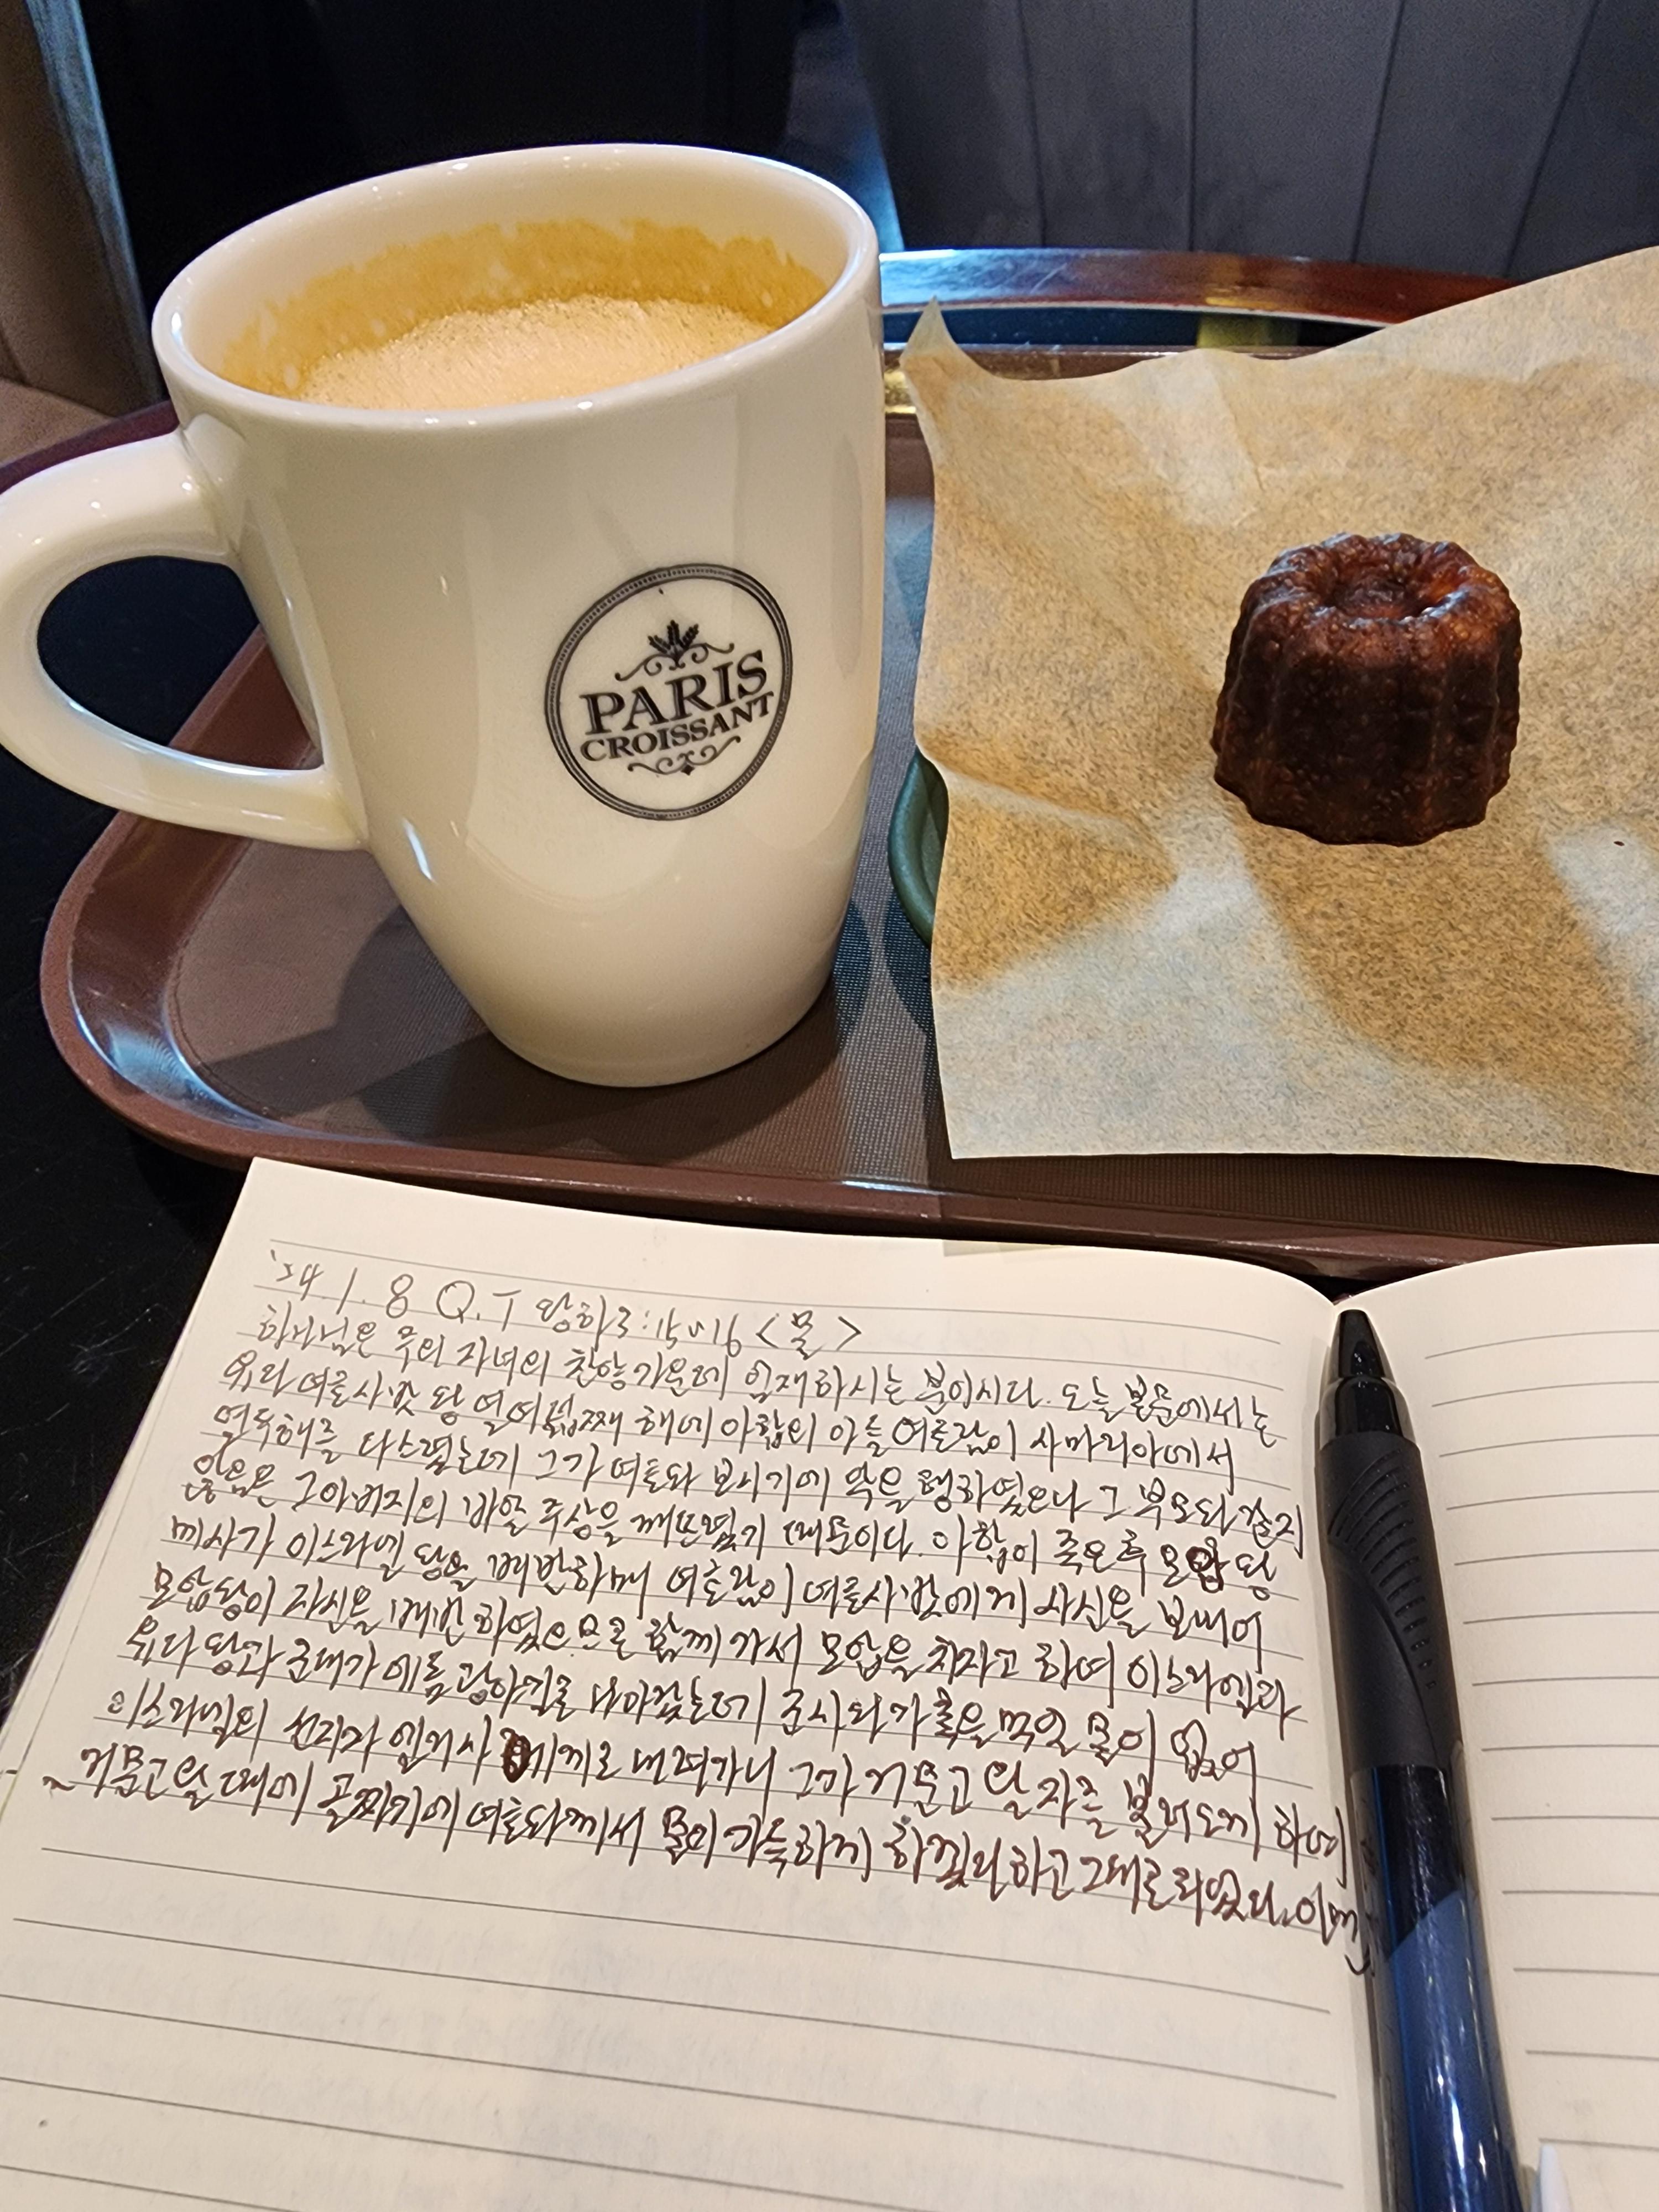 PARIS
CROISSANT
'24. 1. 8 Q.T 왕하3:15~16 <물>
하나님은 우리 자녀의 찬양가운데 임재하시는 분이시다. 오늘 본문에서는
유다 여호사밧 왕 열여덟째 해에 아합의 아들 여호람이 사마리아에서
열두해를 다스렸는데 그가 여호와 보시기에 악을 행하였으나 그 부모와 같지
않음은 그아버지의 바알 주상을 깨뜨렸기 때문이다. 아합이 죽은후 모압 왕
메사가 이스라엘 왕을 배반하매 여호람이 여호사밧에게 사신을 보내어
모압왕이 자신을 배반 하였으므로 함께 가서 모압을 치자고 하여 이스라엘과
유다 왕과 군대가 에돔 광야길로 나아갔는데 군사와 가축을 먹일 물이 없어
이스라엘의 선지자 엘리사에게로 내려가니 그가 거문고 탈 자를 불러오게 하여
거문고 탈 때에 골짜기에 여호와께서 물이 가득하게 하겠다 하고 그대로 되었다.